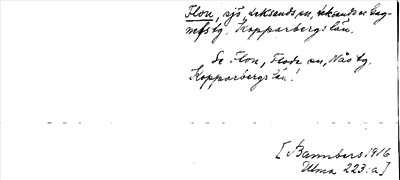 Flon, sjö, Leksands sn, Leksands o. Gag-
nefs tg. Kopparbergs län.
Se Flon, Floda sn, Nås tg.
Kopparbergs län!
[Bannbers 1916
Ulma 223:a]